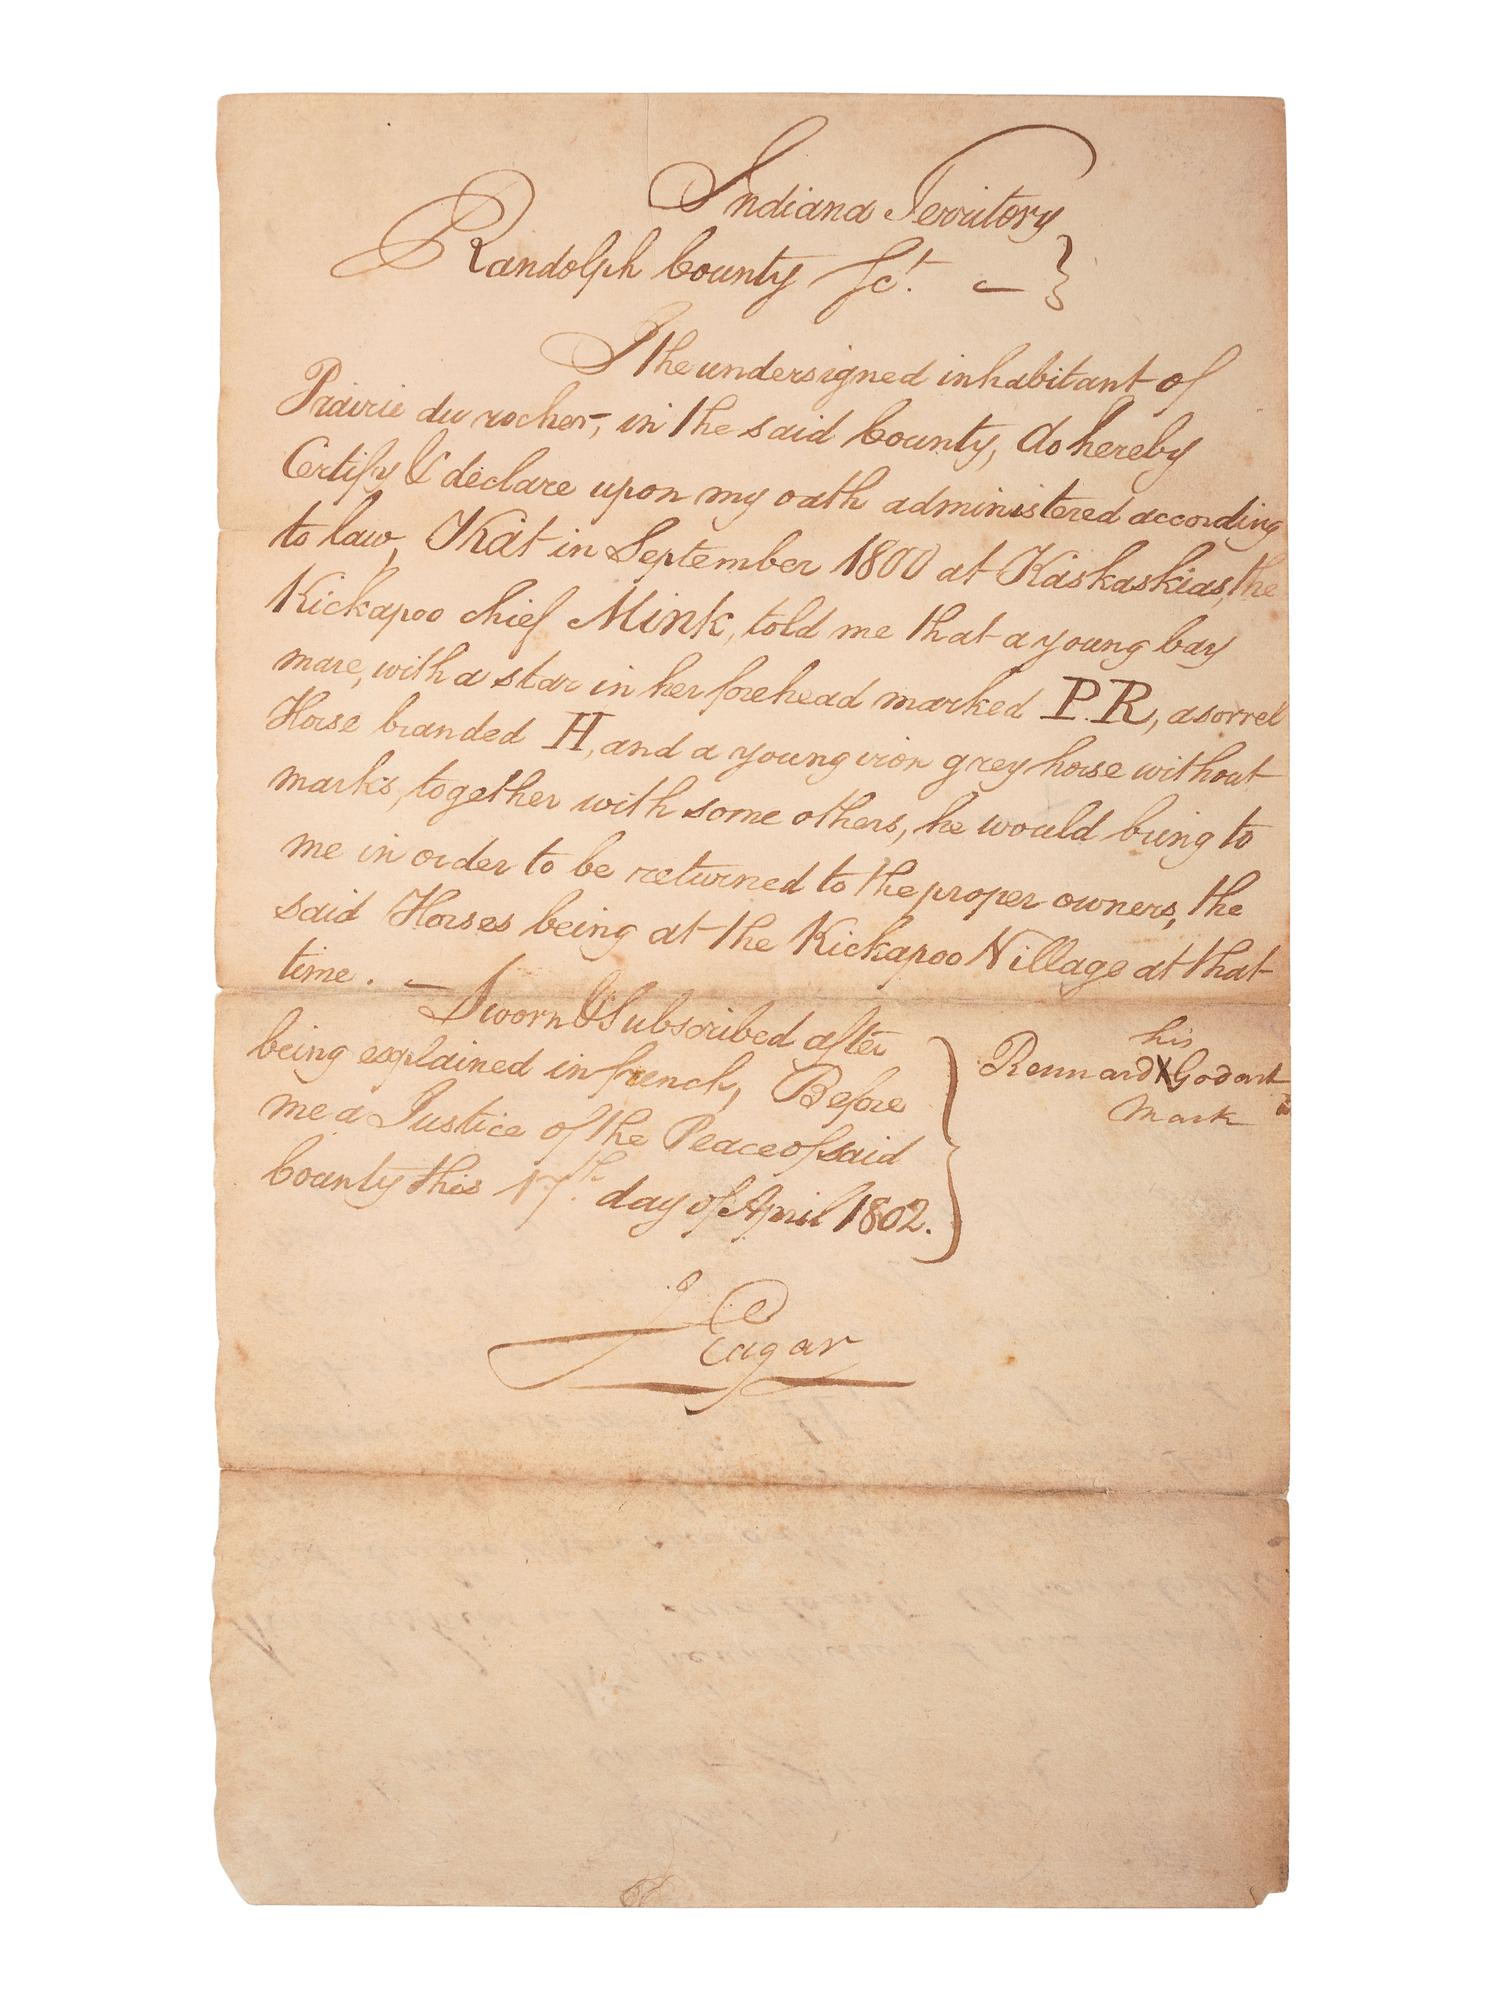 Indiana Territory
Randolph County Sct. }
I the undersigned inhabitant of
Prairie du rocher, in the said County, do hereby
Certify & declare upon my oath administered according
to law, That in September 1800 at Kaskaskias, the
Kickapoo chief Mink, told me that a young bay
mare, with a star in her forehead marked P.R, a sorrel
Horse branded H, and a young iron grey horse without
marks, together with some others, he would bring to
me in order to be returned to the proper owners, the
said Horses being at the Kickapoo Village at that
time. —
Sworn & Subscribed after
being explained in french, Before
me a Justice of the Peace of said
County this 17th. day of April 1802.
his
Rennard X Godart
Mark
J Eagar